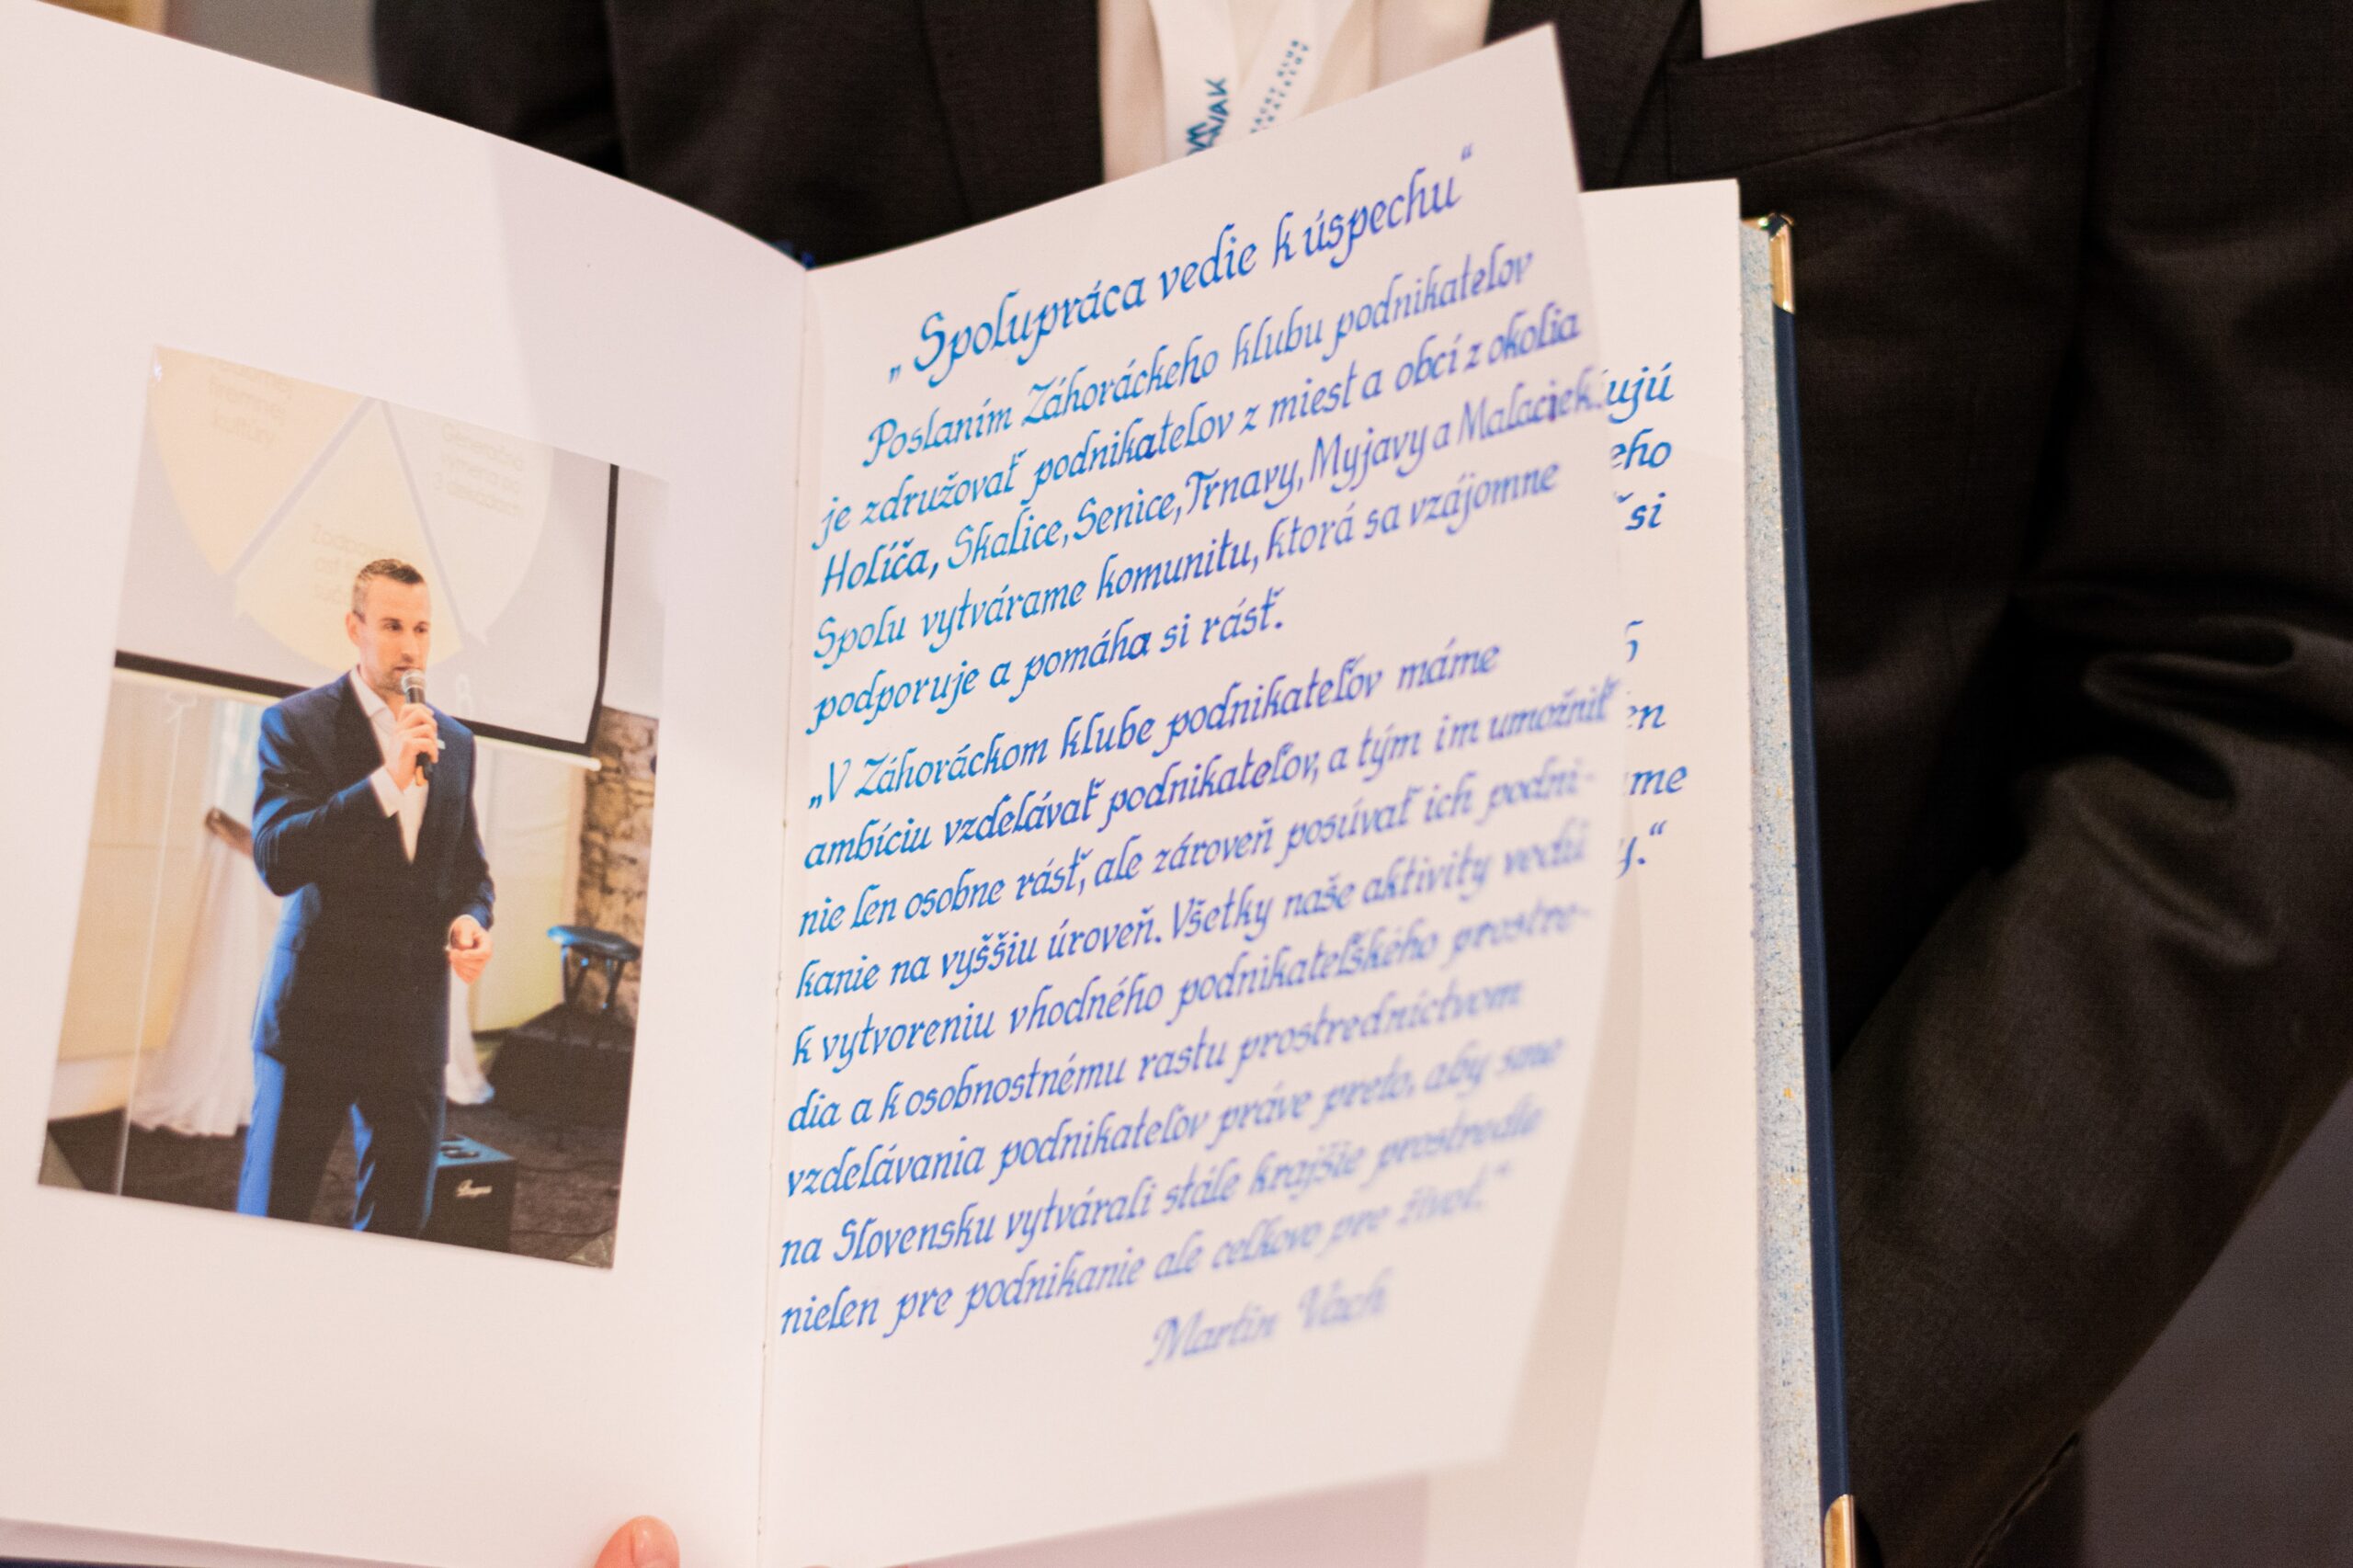 „Spolupráca vedie k úspechu“
Poslaním Záhoráckeho klubu podnikateľov
je združovať podnikateľov z miest a obcí z okolia
Holíča, Skalice, Senice, Trnavy, Myjavy a Malaciek.
Spolu vytvárame komunitu, ktorá sa vzájomne
podporuje a pomáha si rásť.
„V Záhoráckom klube podnikateľov máme
ambíciu vzdelávať podnikateľov, a tým im umožniť
nie len osobne rásť, ale zároveň posúvať ich podni-
kanie na vyššiu úroveň. Všetky naše aktivity vedú
k vytvoreniu vhodného podnikateľského prostre-
dia a k osobnostnému rastu prostredníctvom
vzdelávania podnikateľov práve preto, aby sme
na Slovensku vytvárali stále krajšie prostredie
nielen pre podnikanie ale celkovo pre život.“
Martin Vach
ujú
eho
si
en
me
y.“